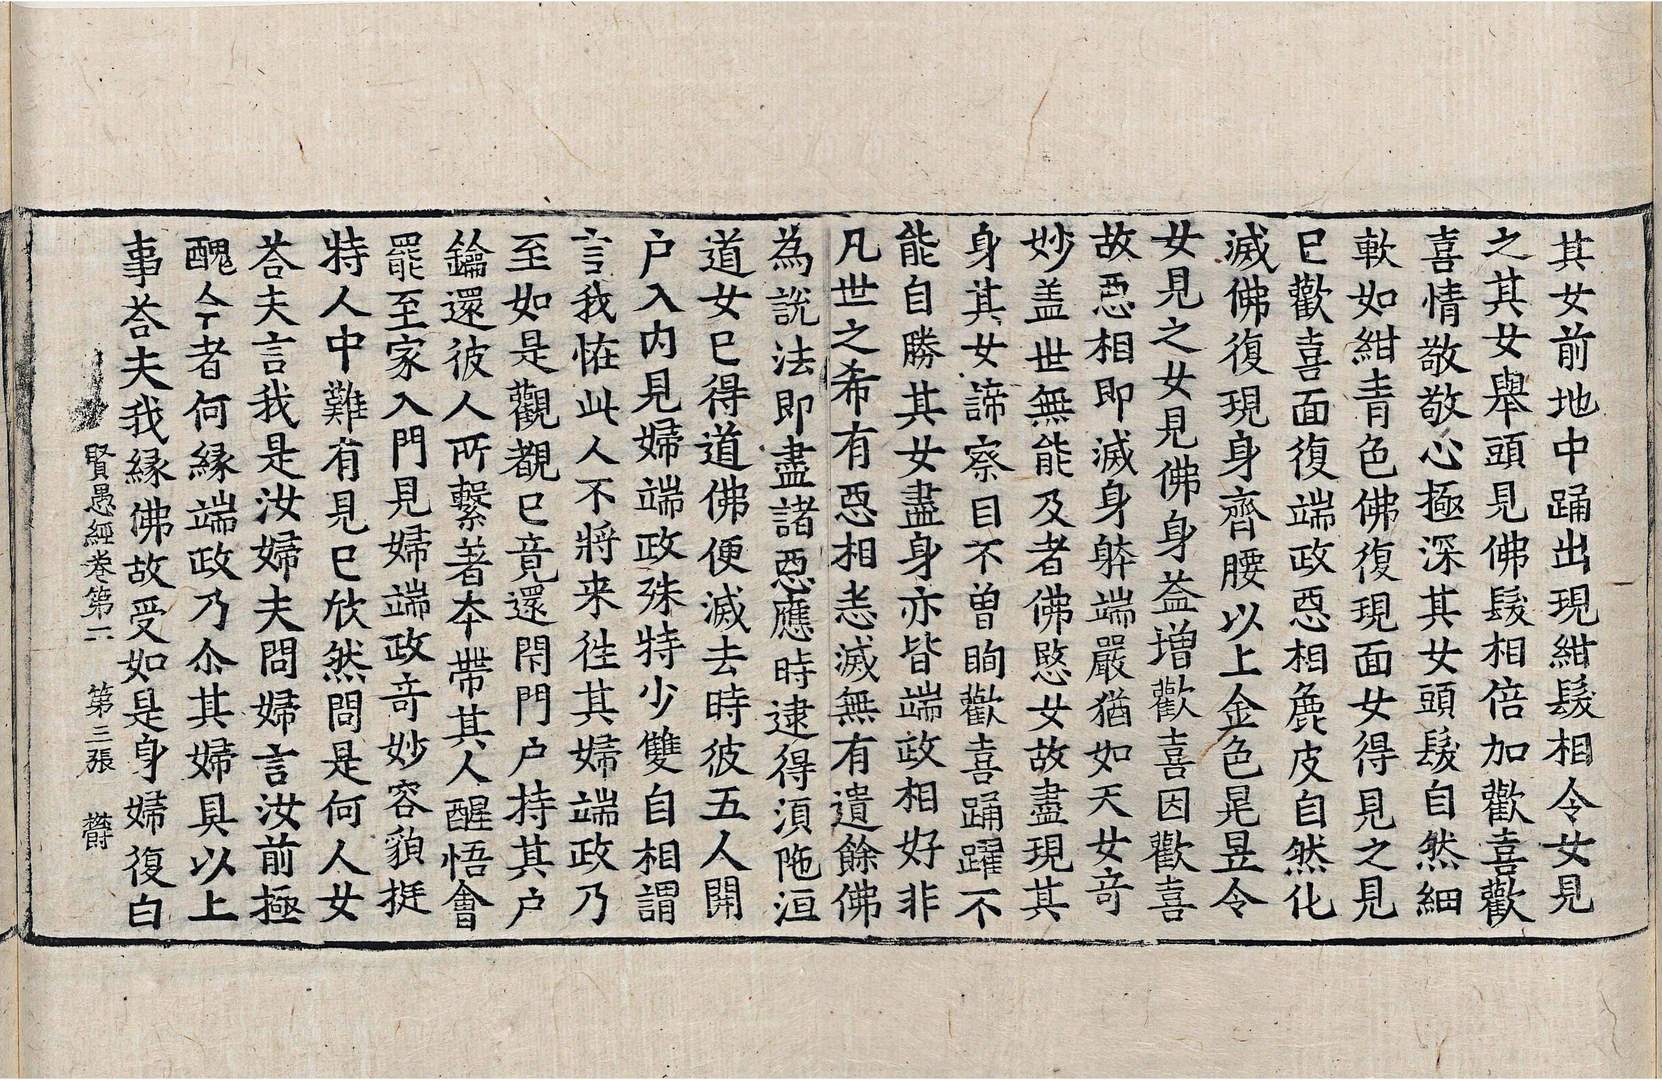 其女前地中踊出現紺髮相令女見
之其女舉頭見佛髮相倍加歡喜歡
喜情敬敬心極深其女頭髮自然細
軟如紺青色佛復現面女得見之見
已歡喜面復端政惡相麁皮自然化
滅佛復現身齊腰以上金色晃昱令
女見之女見佛身益增歡喜因歡喜
故惡相即滅身躰端嚴猶如天女竒
妙盖世無能及者佛愍女故盡現其
身其女諦察目不曾眴歡喜踊躍不
能自勝其女盡身亦皆端政相好非
凡世之希有惡相悉滅無有遺餘佛
為說法即盡諸惡應時逮得湏陁洹
道女已得道佛便滅去時彼五人開
户入內見婦端政殊特少雙自相謂
言我恠此人不將来徃其婦端政乃
至如是觀覩已竟還閇門户持其户
鑰還彼人所繫著本帶其人醒悟會
罷至家入門見婦端政竒妙容貌挺
特人中難有見已欣然問是何人女
荅夫言我是汝婦夫問婦言汝前極
醜今者何緣端政乃尒其婦具以上
事荅夫我緣佛故受如是身婦復白
賢愚經卷第二 第三張 欝